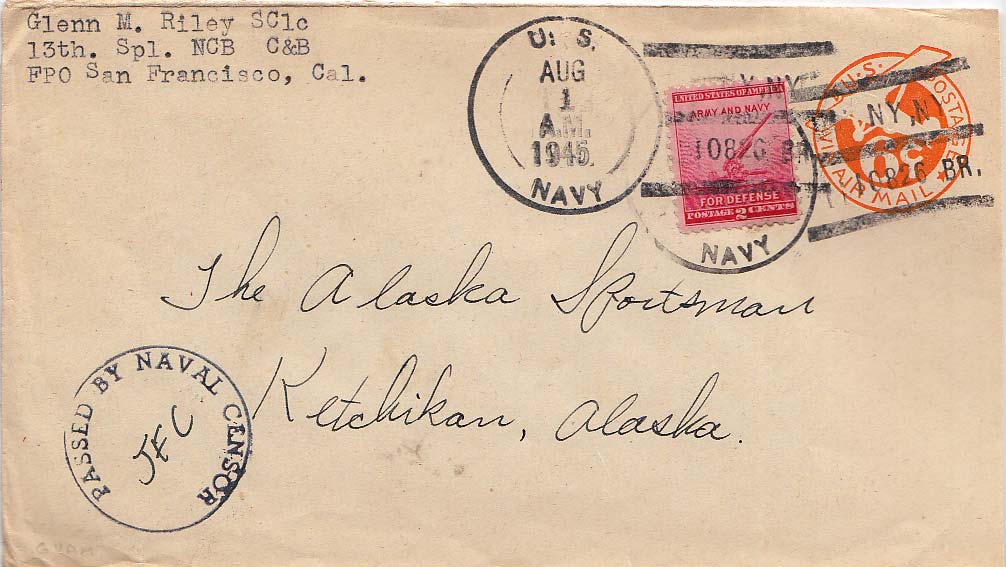 Glenn M. Riley SC1c
13th. Spl. NCB C&B
FPO San Francisco, Cal.
U. S.
AUG
1
A.M.
1945
NAVY
UNITED STATES OF AMERICA
ARMY AND NAVY
10826 BR
FOR DEFENSE
POSTAGE 2 CENTS
NAVY
U.S. POSTAGE
NY, NY
6¢
10826 BR.
VIA AIR MAIL
The Alaska Sportsman
Ketchikan, Alaska.
PASSED BY NAVAL CENSOR
JEC
GUAM